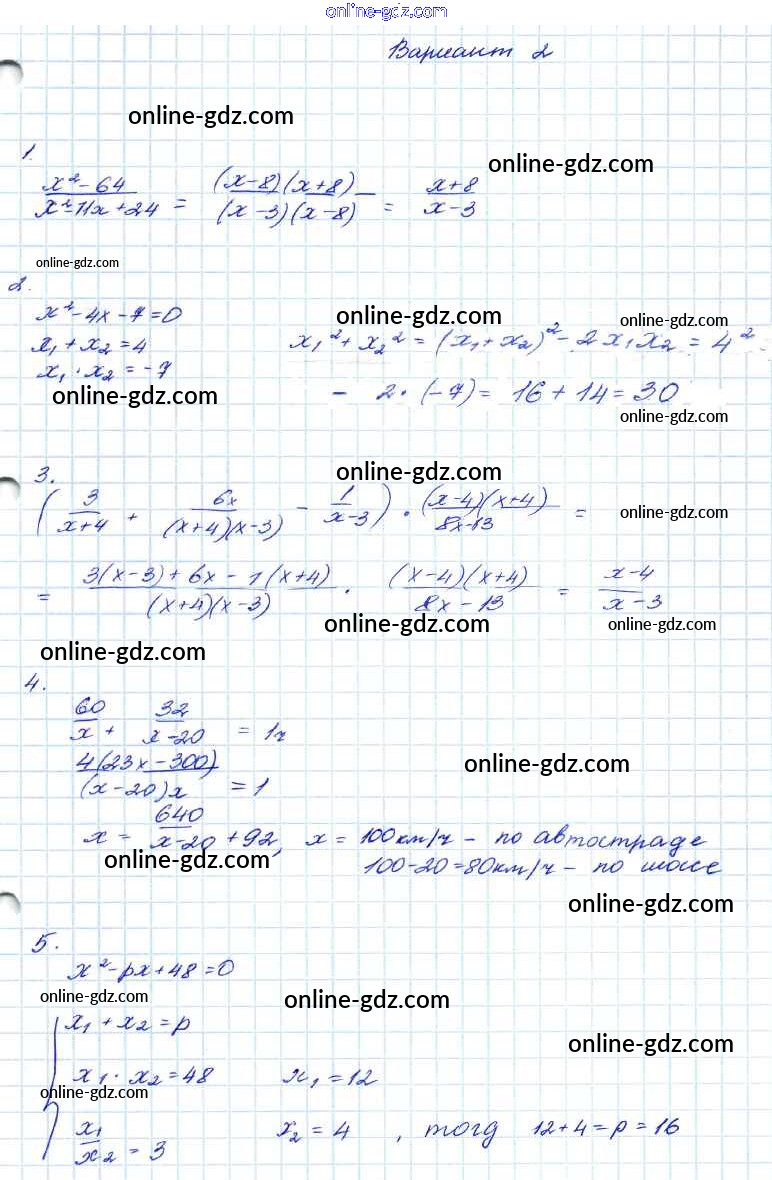 online-gdz.com
Вариант 2
online-gdz.com
1.
online-gdz.com
(x²-64)/(x²-11x+24) = ((x-8)(x+8))/((x-3)(x-8)) = (x+8)/(x-3)
online-gdz.com
2.
x²-4x-7=0
online-gdz.com
online-gdz.com
x₁+x₂=4
x₁²+x₂²=(x₁+x₂)²-2x₁x₂=4²
x₁·x₂=-7
online-gdz.com
- 2·(-7)= 16+14=30
online-gdz.com
3.
online-gdz.com
(3/(x+4) + 6x/((x+4)(x-3)) - 1/(x-3)) · ((x-4)(x+4))/(8x-13) =
online-gdz.com
= (3(x-3)+6x-1(x+4))/((x+4)(x-3)) · ((x-4)(x+4))/(8x-13) = (x-4)/(x-3)
online-gdz.com
online-gdz.com
online-gdz.com
4.
60/x + 32/(x-20) = 1ч
4(23x-300)/((x-20)x) = 1
online-gdz.com
x = 640/(x-20) + 92, x = 100км/ч - по автостраде
online-gdz.com
100-20=80км/ч - по шоссе
online-gdz.com
5.
x²-px+48=0
online-gdz.com
online-gdz.com
x₁+x₂=p
online-gdz.com
x₁·x₂=48 x₁=12
online-gdz.com
x₁/x₂=3 x₂=4, тогд 12+4=p=16